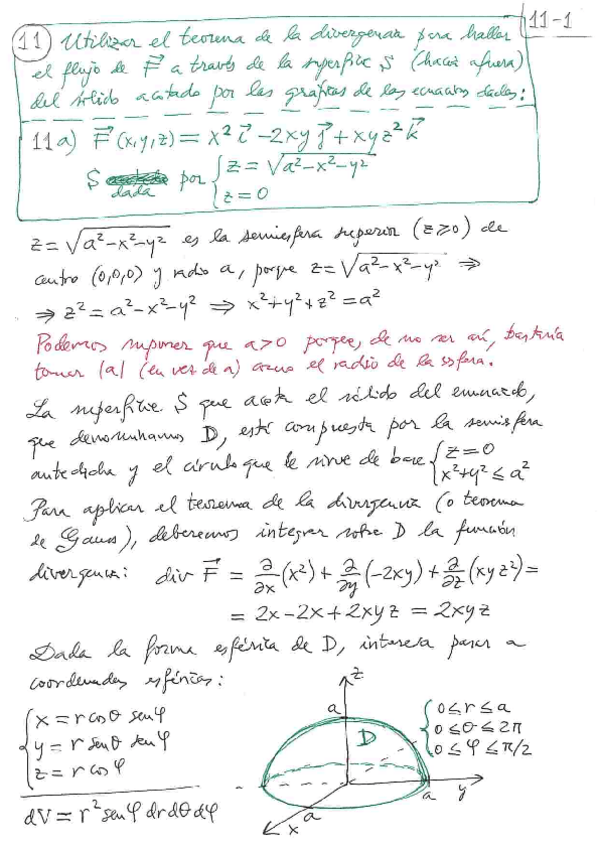 11-1
11 Utilizar el teorema de la divergencia para hallar
el flujo de F⃗ a través de la superficie S (hacia afuera)
del sólido acotado por las gráficas de las ecuaciones dadas:
11a) F⃗(x,y,z) = x² i⃗ - 2xy j⃗ + xyz² k⃗
S dada por { z = √(a²-x²-y²)
z = 0
z = √(a²-x²-y²) es la semiesfera superior (z≥0) de
centro (0,0,0) y radio a, porque z = √(a²-x²-y²) ⇒
⇒ z² = a²-x²-y² ⇒ x²+y²+z² = a²
Podemos suponer que a>0 porque, de no ser así, bastaría
tomar |a| (en vez de a) como el radio de la esfera.
La superficie S que acota el sólido del enunciado,
que denominamos D, está compuesta por la semiesfera
antedicha y el círculo que le sirve de base { z=0
x²+y² ≤ a²
Para aplicar el teorema de la divergencia (o teorema
de Gauss), deberemos integrar sobre D la función
divergencia: div F⃗ = ∂/∂x (x²) + ∂/∂y (-2xy) + ∂/∂z (xyz²) =
= 2x - 2x + 2xyz = 2xyz
Dada la forma esférica de D, interesa pasar a
coordenadas esféricas:
{ x = r cosθ senφ
y = r senθ senφ
z = r cosφ
dV = r² senφ dr dθ dφ
z
a
D
a
y
a
x
{ 0 ≤ r ≤ a
0 ≤ θ ≤ 2π
0 ≤ φ ≤ π/2